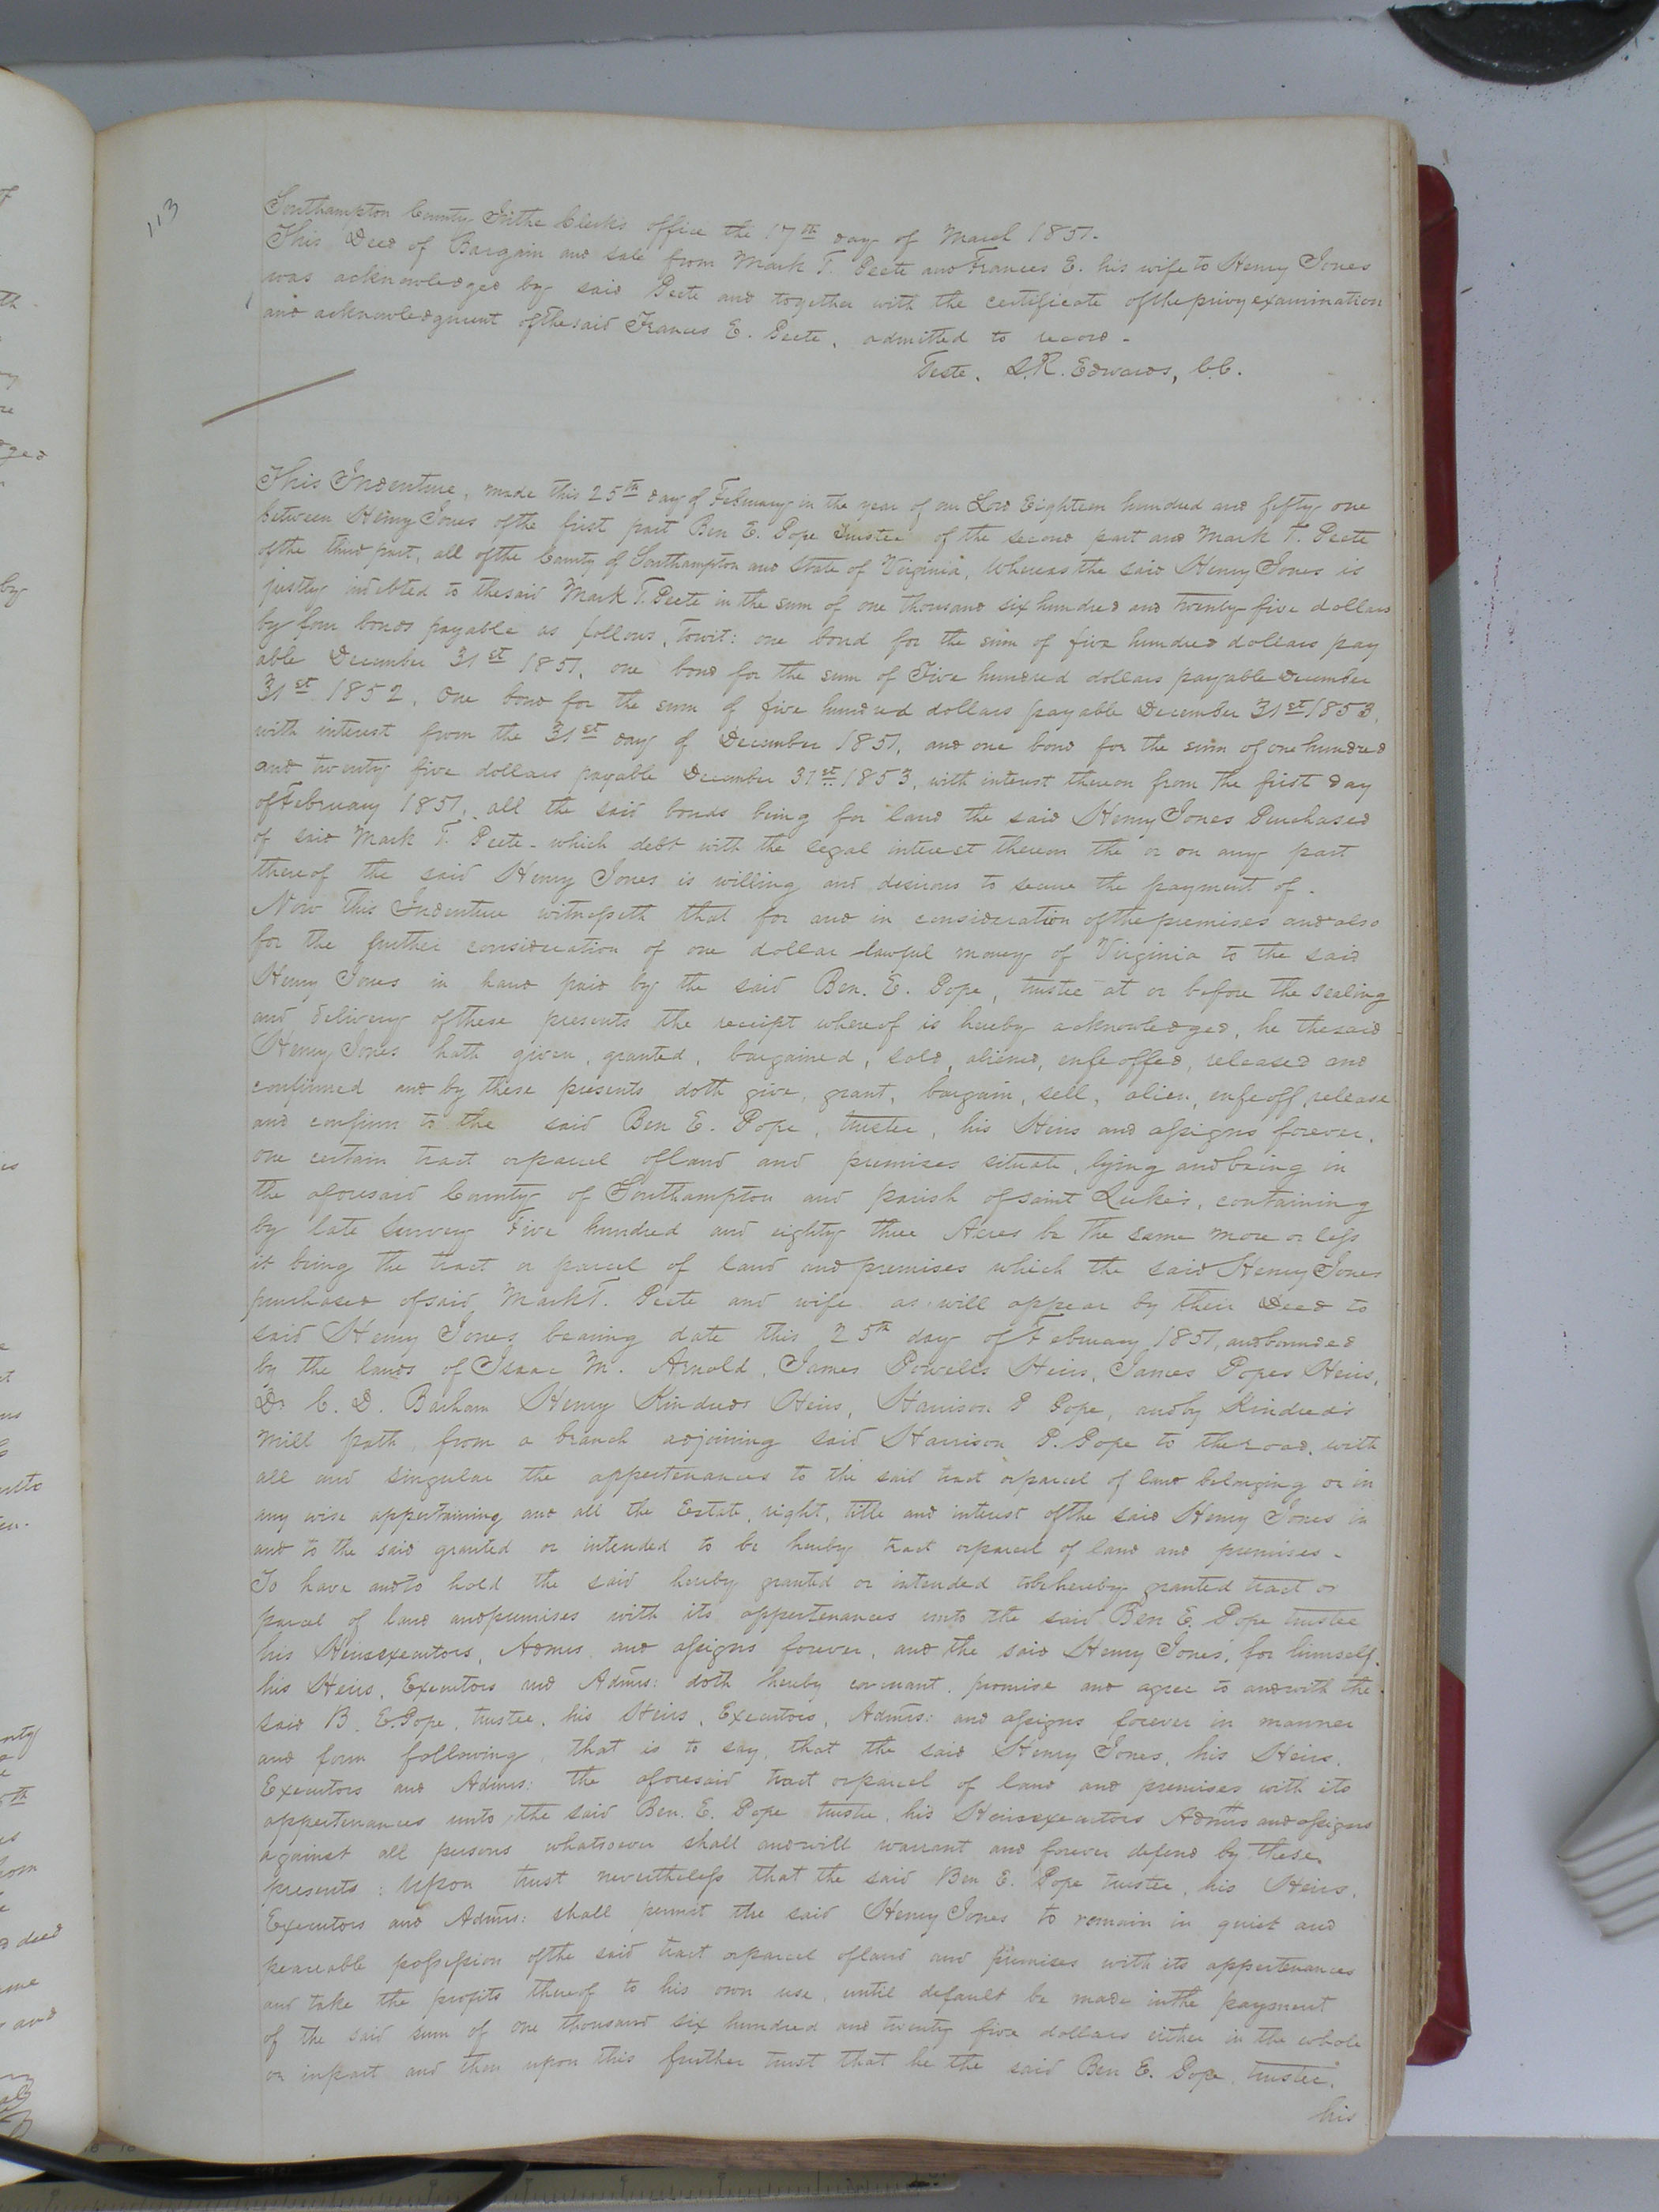 113
Southampton County In the Clerk's office the 17th day of March 1851.
This Deed of Bargain and sale from Mark T. Peete and Frances E. his wife to Henry Jones
was acknowledged by said Peete and together with the certificate of the privy examination
and acknowledgment of the said Frances E. Peete, admitted to record.
Teste. L.R. Edwards, C.C.
This Indenture, made this 25th day of February in the year of our Lord Eighteen hundred and fifty one
between Henry Jones of the first part Ben E. Pope trustee of the second part and Mark T. Peete
of the third part, all of the County of Southampton and State of Virginia, Whereas the said Henry Jones is
justly indebted to the said Mark T. Peete in the sum of one thousand six hundred and twenty five dollars
by four bonds payable as follows, Towit: one bond for the sum of five hundred dollars pay
able December 31st 1851, one bond for the sum of Five hundred dollars payable December
31st 1852, One bond for the sum of five hundred dollars payable December 31st 1853,
with interest from the 31st day of December 1851, and one bond for the sum of one hundred
and twenty five dollars payable December 31st 1853, with interest thereon from the first day
of February 1851, all the said bonds being for land the said Henry Jones Purchased
of said Mark T. Peete - which debt with the legal interest thereon the or on any part
thereof the said Henry Jones is willing and desirous to secure the payment of.
Now This Indenture witnesseth that for and in consideration of the premises and also
for the further consideration of one dollar lawful money of Virginia to the said
Henry Jones in hand paid by the said Ben. E. Pope, trustee at or before the sealing
and delivery of these presents the receipt whereof is hereby acknowledged, he the said
Henry Jones hath given, granted, bargained, sold, aliened, enfeoffed, released and
confirmed and by these presents doth give, grant, bargain, sell, alien, enfeoff, release
and confirm to the said Ben E. Pope, trustee, his Heirs and assigns forever,
one certain tract or parcel of land and premises situate, lying and being in
the aforesaid County of Southampton and parish of saint Luke's, containing
by late survey Five hundred and eighty three Acres be the same more or less
it being the tract or parcel of land and premises which the said Henry Jones
purchased of said, Mark T. Peete and wife as will appear by their Deed to
said Henry Jones bearing date this 25th day of February 1851, and bounded
by the lands of Isaac M. Arnold, James Powells Heirs, James Popes Heirs,
Dr. C. D. Barham Henry Kindreds Heirs, Harrison P Pope, and by Kindred's
Mill path from a branch adjoining said Harrison P. Pope to the road, with
all and singular the appertenances to the said tract or parcel of land belonging or in
any wise appertaining and all the Estate, right, title and interest of the said Henry Jones in
and to the said granted or intended to be hereby tract or parcel of land and premises -
To have and to hold the said hereby granted or intended tobe hereby granted tract or
parcel of land and premises with its appertenances unto the said Ben E. Pope trustee
his Heirs executors, Admrs and assigns forever, and the said Henry Jones, for himself,
his Heirs, Executors and Admrs: doth hereby covenant, promise and agree to and with the
said B. E. Pope, trustee, his Heirs, Executors, Admrs: and assigns forever in manner
and form following, that is to say, that the said Henry Jones, his Heirs,
Executors and Admrs: the aforesaid tract or parcel of land and premises with its
appertenances unto the said Ben. E. Pope trustee, his Heirs executors Admrs and assigns
against all persons whatsoever shall and will warrant and forever defend by these
presents: Upon trust nevertheless that the said Ben E. Pope trustee, his Heirs,
Executors and Admrs: shall permit the said Henry Jones to remain in quiet and
peaceable possession of the said tract or parcel of land and premises with its appertenances
and take the profits thereof to his own use, until default be made in the payment
of the said sum of one thousand six hundred and twenty five dollars either in the whole
or in part and then upon this further trust that he the said Ben E. Pope, trustee,
his